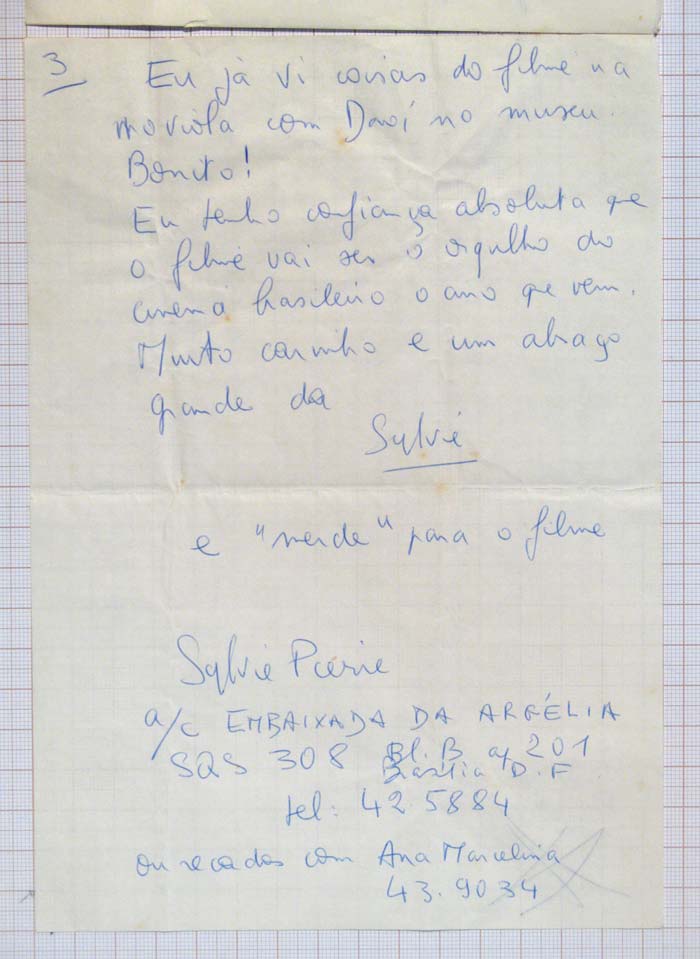 3 Eu já vi coisas do filme na
moviola com Daví no museu.
Bonito!
Eu tenho confiança absoluta que
o filme vai ser o orgulho do
cinema brasileiro o ano que vem.
Muito carinho e um abraço
grande da
Sylvie
e "merde" para o filme
Sylvie Pierre
a/c EMBAIXADA DA ARGÉLIA
SQS 308 Bl. B ap 201
Brasilia D.F
tel: 42.5884
ou recados com Ana Marcelina
43.9034